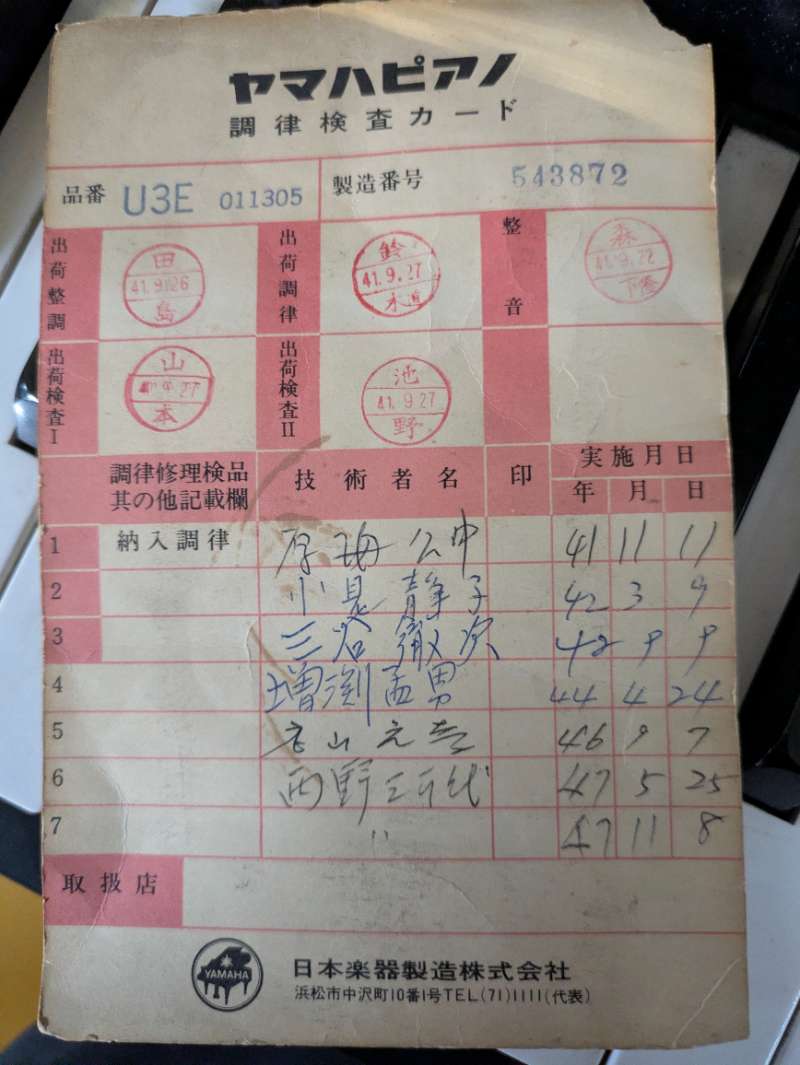 ヤマハピアノ
調律検査カード
品番 U3E 011305 製造番号 543872
出荷整調 田島 41.9.26 出荷調律 鈴木 41.9.27 整音 森下 41.9.22
出荷検査I 山本 9.27 出荷検査II 池野 41.9.27
調律修理検品其の他記載欄 技術者名 印 実施月日
年 月 日
1 納入調律 41 11 11
2 静子 42 3 9
3 三谷徹次 42 9 9
4 増渕孟男 44 4 24
5 山 46 9 7
6 西野三千代 47 5 25
7 〃 47 11 8
取扱店
YAMAHA
日本楽器製造株式会社
浜松市中沢町10番1号TEL(71)1111(代表)